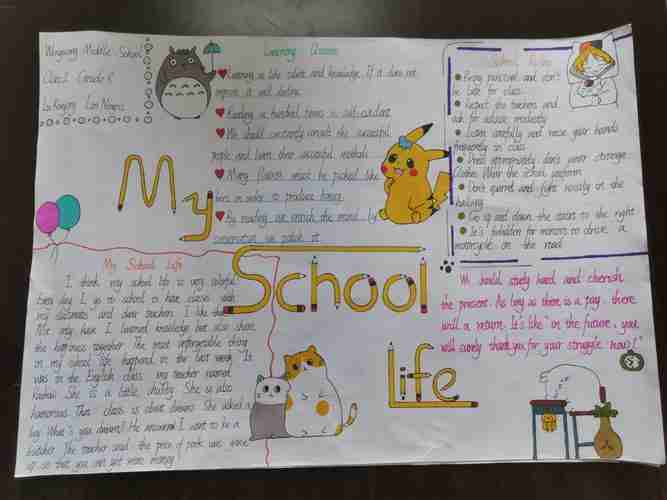 Wengwang Middle School
Class 1 Grade 8
Learning
♥Learning is like silent and knowledge. If it does not
improve, it will decline.
♥Reading a hundred times is self-evident
♥We should constantly consult the successful
people and learn three successful methods
♥Many flowers must be picked like
bees in order to produce honey.
♥By reading we enrich the mind, by
conversation we polish it
School Rules
Being punctual and don't
be late for class.
Respect the teachers and
ask for advice modestly
Listen carefully and raise your hands
frequently in class
Dress appropriately, don't wear strange
clothes. Wear the school uniform
Don't quarrel and fight noisily in the
building
Go up and down the stairs to the right
It's forbidden for minors to drive a
motorcycle on the road
My
School
Life
My School Life
I think my school life is very colorful
Every day I go to school to have classes with
my classmates and dear teachers. I like
Not only have I learned knowledge but also share
the happiness together. The most unforgettable thing
in my school life happened in the last week. It
was in the English class. my teacher named
She is a little chubby. She is also
humorous. That class is about dreams. She asked a
boy "What's you dream?" He answered "I want to be a
butcher. The teacher said the price of pork was gone
up so that you can get more money!
We should study hand and cherish
the present. As long as there is a pay, there
will a return. It's like "in the future, you
will surely thank you for your struggle now!"